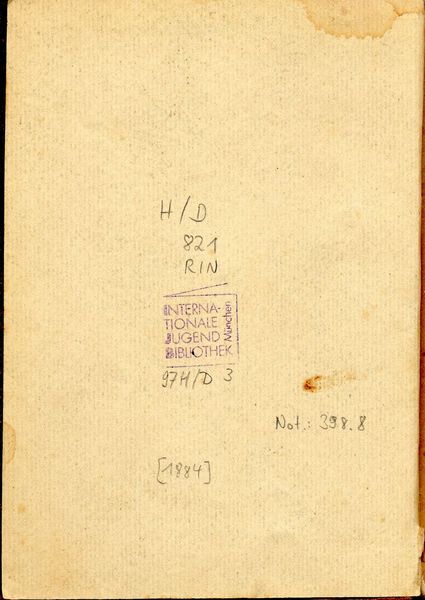 H/D
821
RIN
INTERNA-
TIONALE
JUGEND
BIBLIOTHEK
München
97H/D 3
Not.: 398.8
[1884]